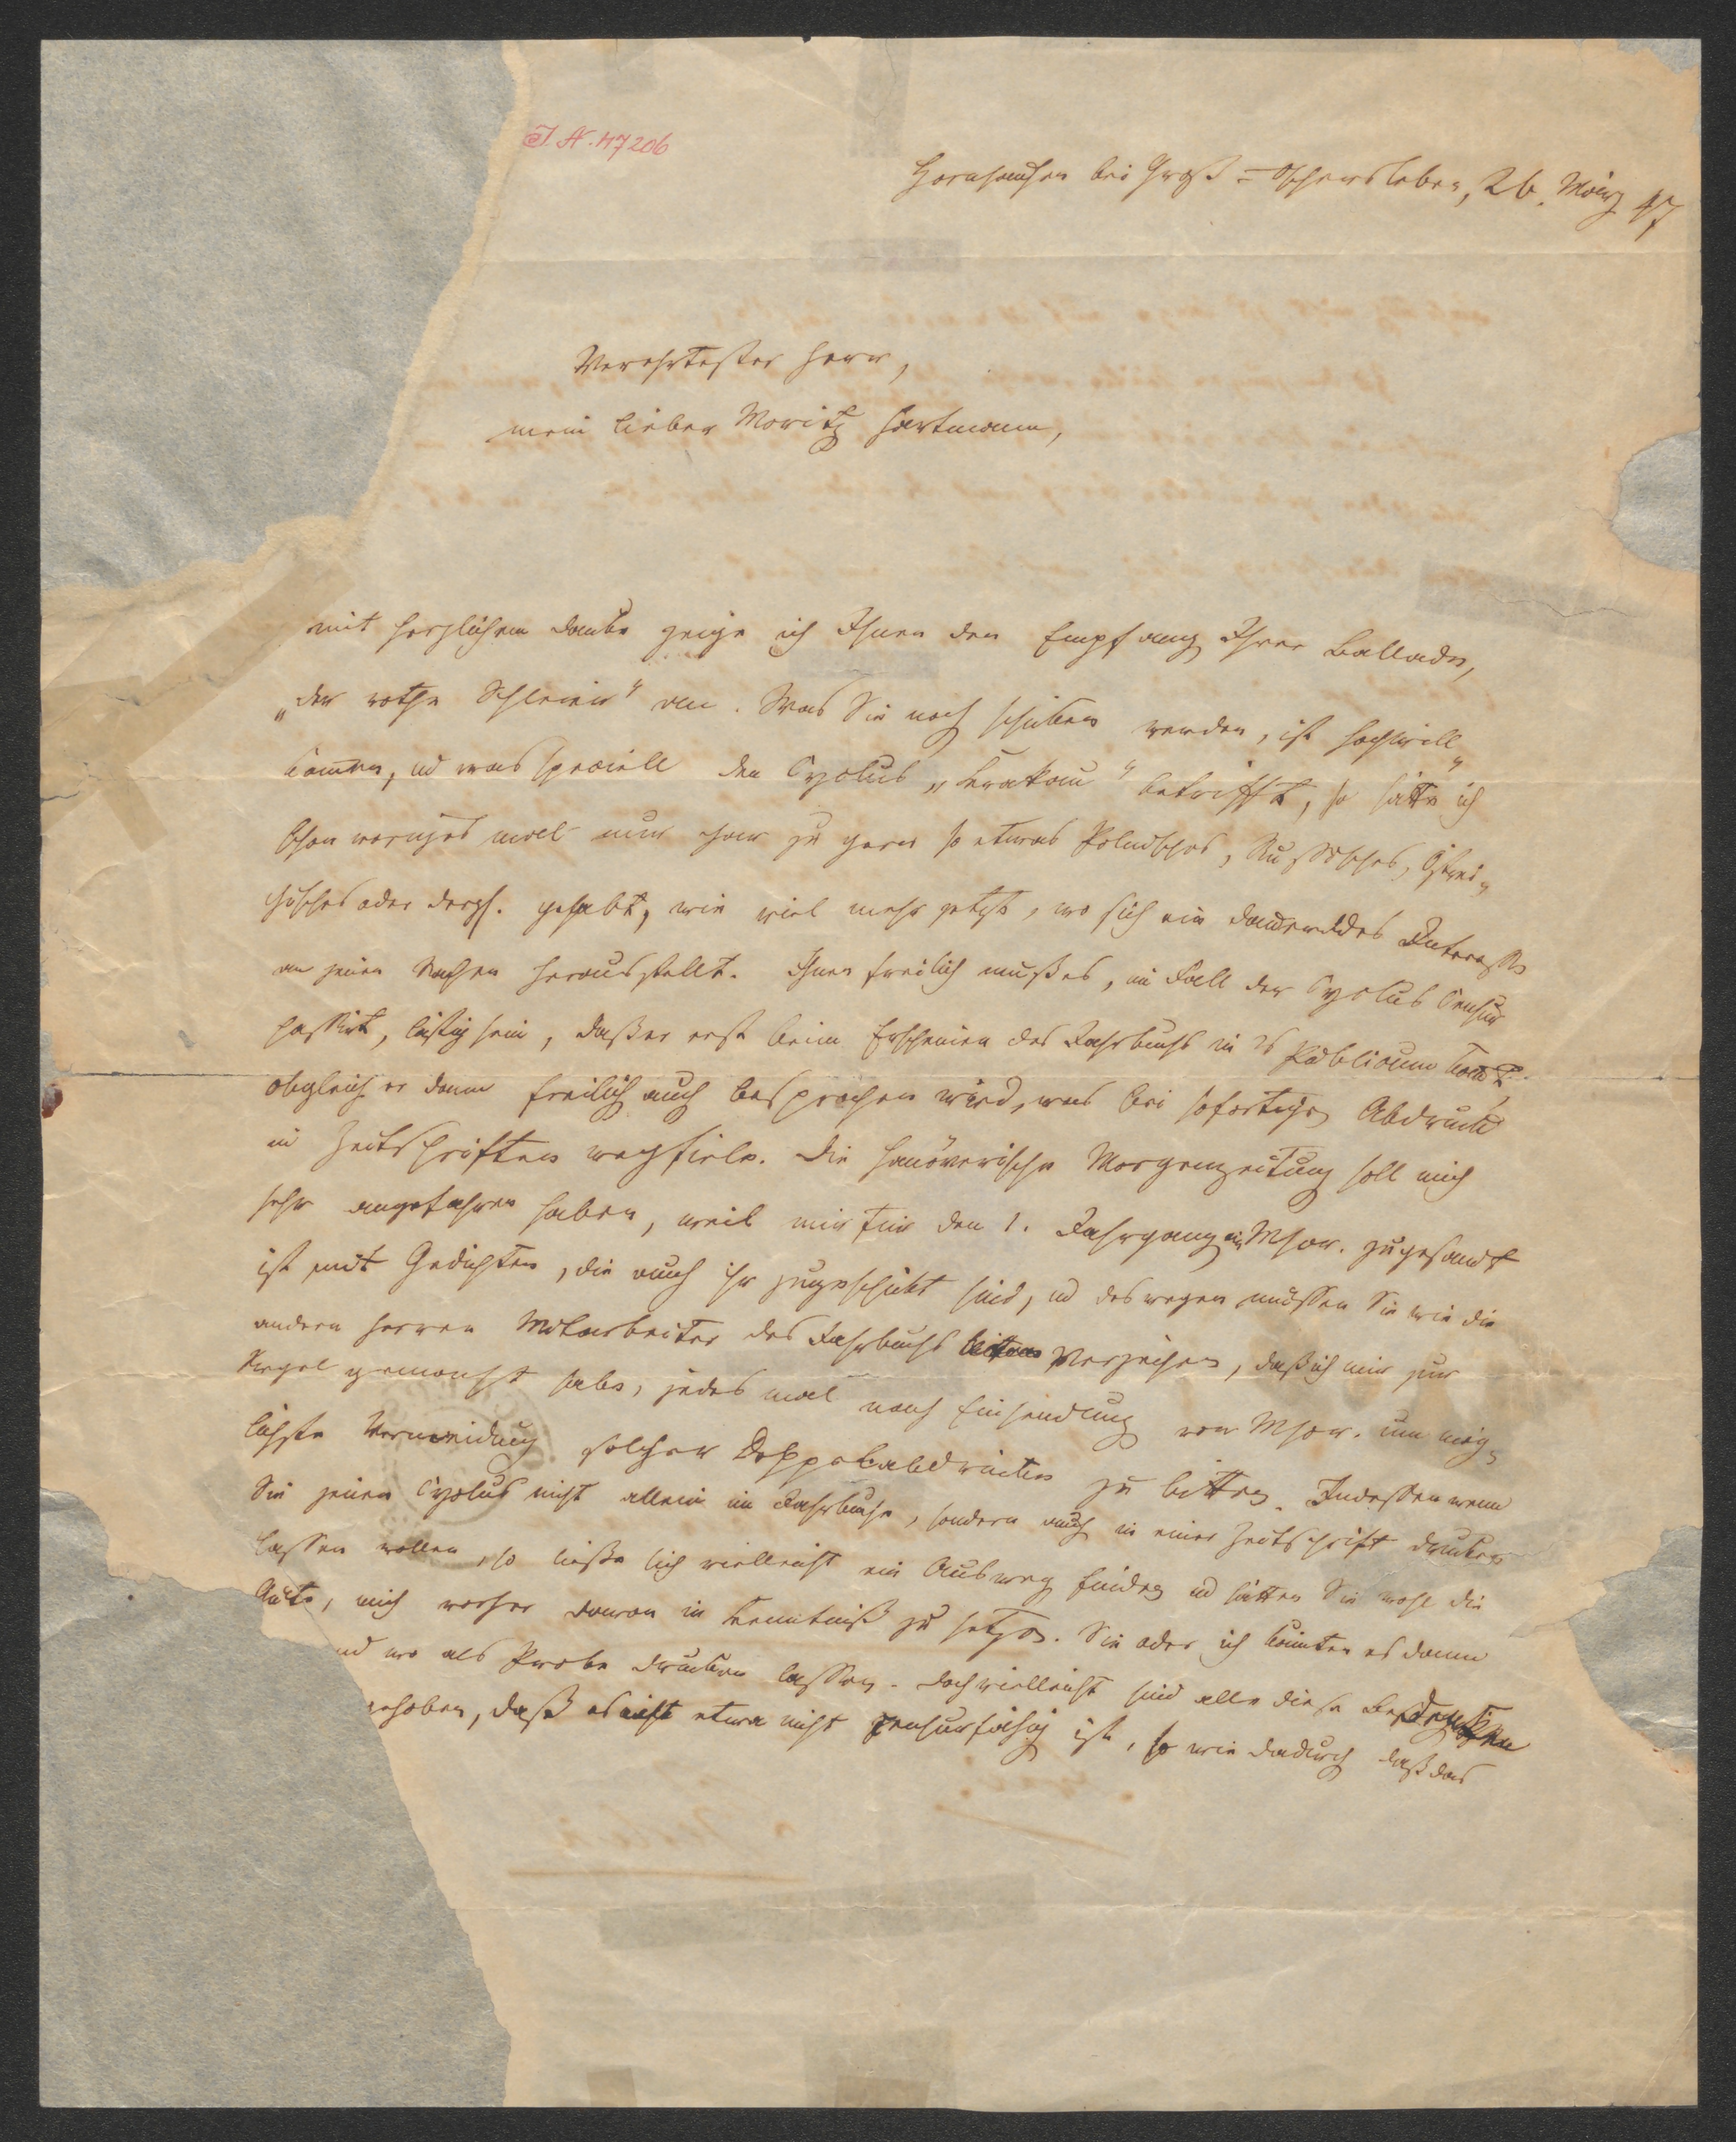 I. N. 47206
Hornhausen bei Groß-Oschersleben, 26. März 47
Verehrtester Herr,
mein lieber Moritz Hartmann,
mit herzlichem Danke zeige ich Ihnen den Empfang Ihrer Ballade,
„der rothe Schleier" an. Was Sie noch schicken werden, ist hochwill-
kommen, und was speciell den Cyclus „Krakau" betrifft, so hätte ich
schon voriges mal nur gar zu gern so etwas Polnisches, Russisches, Östrei-
chisches oder dergl. gehabt, wie viel mehr jetzt, wo sich ein dauerndes Interesse
an jenen Sachen herausstellt. Ihnen freilich muß es, im Fall der Cyclus Censur
passirt, lästig sein, daß er erst beim Erscheinen des Jahrbuchs in's Publicum kommt,
obgleich er dann freilich auch besprochen wird, was bei sofortigem Abdruck
in Zeitschriften wegfiele. Die hanöverische Morgenzeitung soll mich
sehr angefahren haben, weil mir für den 1. Jahrgang ein Mscr. zugesandt
ist mit Gedichten, die auch ihr zugeschickt sind, und deswegen müssen Sie wie die
andern Herren Mitarbeiter des Jahrbuchs verzeihen, daß ich mir zur
Regel gemacht habe, jedes mal nach Einsendung von Mscr. um mög-
lichste Vermeidung solcher Doppelabdrücke zu bitten. Indessen wenn
Sie jenen Cyclus nicht allein im Jahrbuche, sondern auch in einer Zeitschrift drucken
lassen wollen, so ließe sich vielleicht ein Ausweg finden und hätten Sie wohl die
Güte, mich vorher davon in Kenntniß zu setzen. Sie oder ich könnten es dann
wo als Probe drucken lassen. Doch vielleicht sind alle diese
gehoben, daß es etwa nicht zensurfähig ist, so wie dadurch daß das